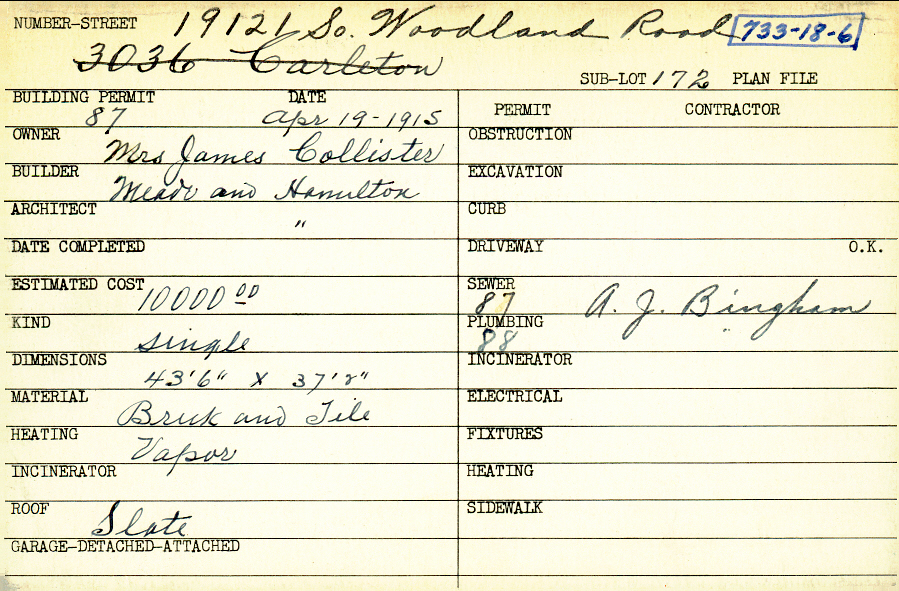 NUMBER-STREET 19121 So. Woodland Road 733-18-6
3036 Carleton
SUB-LOT 172 PLAN FILE
BUILDING PERMIT DATE
87 Apr 19-1915
PERMIT CONTRACTOR
OWNER Mrs James Collister
OBSTRUCTION
BUILDER Meade and Hamilton
EXCAVATION
ARCHITECT "
CURB
DATE COMPLETED
DRIVEWAY O.K.
ESTIMATED COST 10000 00
SEWER 87 A. J. Bingham
KIND single
PLUMBING 88 "
DIMENSIONS 43'6" X 37'2"
INCINERATOR
MATERIAL Brick and Tile
ELECTRICAL
HEATING Vapor
FIXTURES
INCINERATOR
HEATING
ROOF Slate
SIDEWALK
GARAGE-DETACHED-ATTACHED